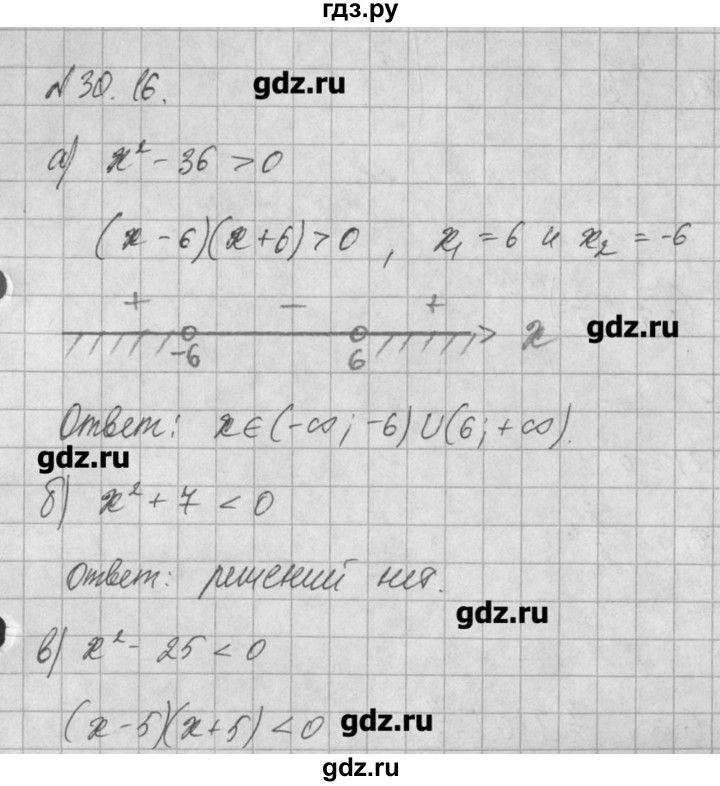 гдз.ру
№30.16.
gdz.ru
а) x² - 36 > 0
(x - 6)(x + 6) > 0, x₁ = 6 и x₂ = -6
+ - +
-6 6 x
gdz.ru
Ответ: x ∈ (-∞; -6) ∪ (6; +∞).
gdz.ru
б) x² + 7 < 0
Ответ: решений нет.
gdz.ru
в) x² - 25 < 0
(x - 5)(x + 5) < 0
gdz.ru
gdz.ru